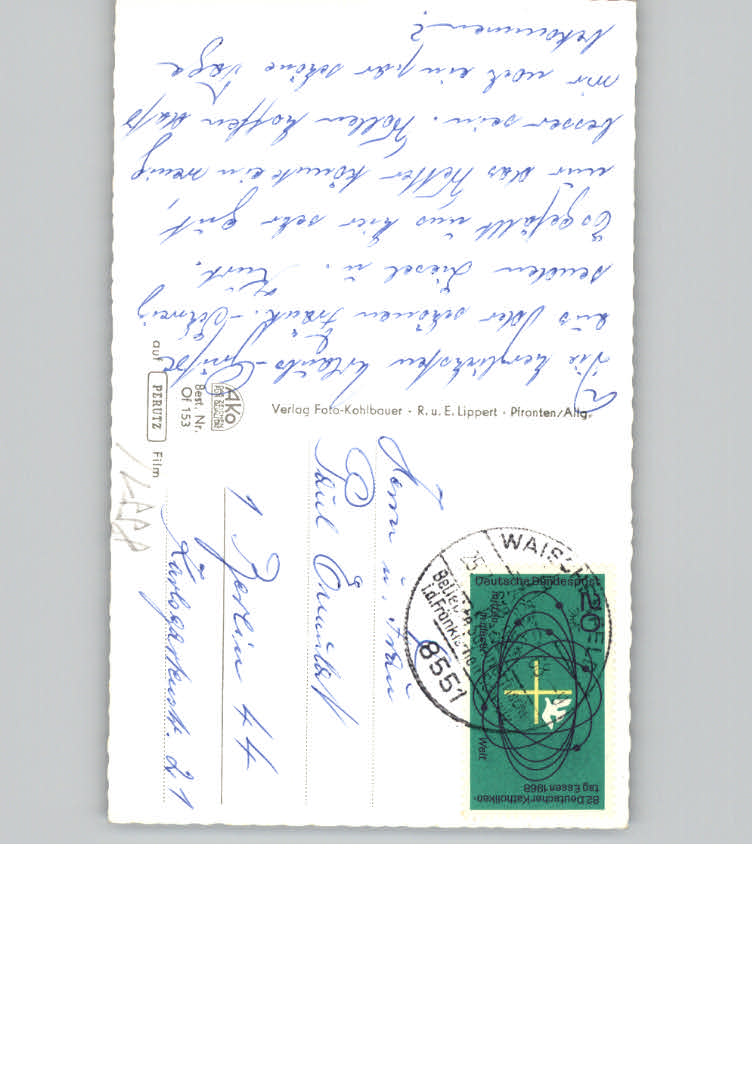 Die herzlichsten Urlaubs-Grüße
aus der schönen Fränk.-Schweiz
senden Liesel u. Kurt.
Es gefällt uns hier sehr gut,
nur das Wetter könnte ein wenig
besser sein. Wollen hoffen daß
wir noch ein paar schöne Tage
bekommen?
Verlag Foto-Kohlbauer - R. u. E. Lippert - Pfronten/Allg.
Ako
Best. Nr.
Of 153
auf PERUTZ Film
Herrn u. Frau
Paul
1 Berlin 44
21
Deutsche Bundespost
20
82. Deutscher Katholiken-
tag Essen 1968
Mitten in dieser Welt
8551 WAISCHENFELD
25
i.d. Fränk.